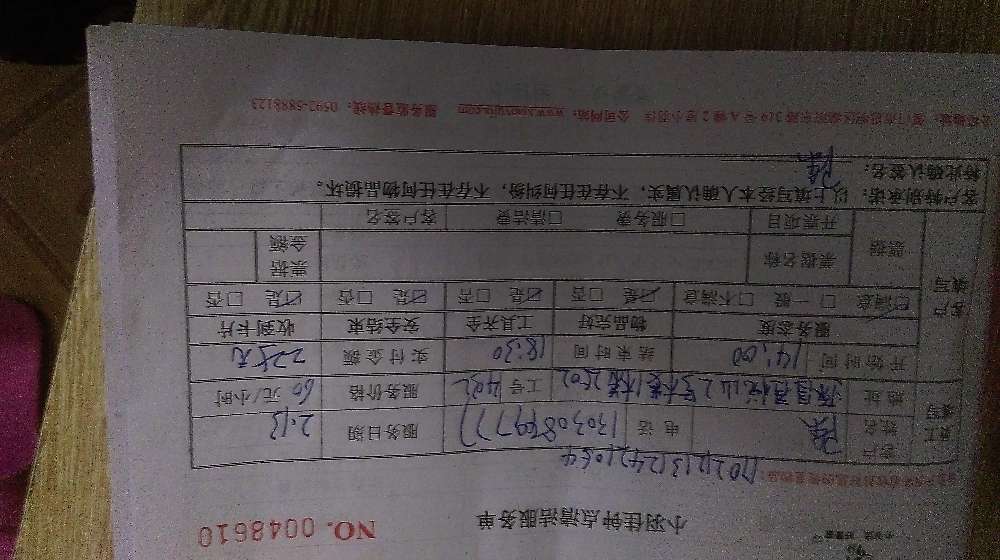 小羽佳钟点清洁服务单
NO. 0048610
1702421312421054
员工填写 客户姓名 陈 电话 13030889777 服务日期 2.13
地址 2号楼 2502 工号 402 服务价格 60 元/小时
开始时间 14:00 结束时间 18:30 实付金额 225元
客户填写 服务态度 物品完好 工具齐全 安全结束 收到卡片
☑满意 □一般 □不满意 ☑是 □否 ☑是 □否 ☑是 □否 ☑是 □否
票据 票据名称 票据金额
开票项目 □服务费 □清洁费 客户签名
客户特别承诺：以上填写经本人确认属实，不存在任何纠纷，不存在任何物品损坏。
特此确认签名： 陈
2楼小羽佳 公司网站：www.xmxyj.com 服务监督热线：0592-5888123